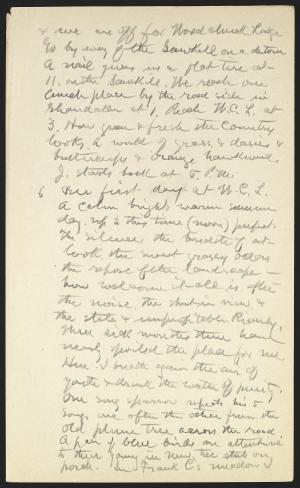 & we are off for Woodchuck Lodge
Go by way of the Sawkill on a detour
A nail gives us a flat tire at
11. on the Sawkill. We reach our
lunch place by the road side in
Shandaken at 1. Reach W.C.L. at
3. How green & fresh the country
looks, a world of grass & daisies &
buttercups & orange hawkweed.
J. starts back at 5. P.M.
6 Our first day at W.C.L.
A calm bright warm summer
day, up to this time (noon) perfect.
The silence, the breadth of out-
look, the sweet grassy odors
the repose of the landscape —
how welcome it all is, after
the noise, the shut-in view &
the stale & unprofitable Riverby.
Three sick months there have
nearly spoiled the place for me.
Here I breathe again the air of
youth & drink the water of purity.
One song sparrow repeats his 5
songs one after the other from the
old plum tree across the road
A pair of blue birds are attentive
to their young in new tree stub on
porch. In Frank C's meadow